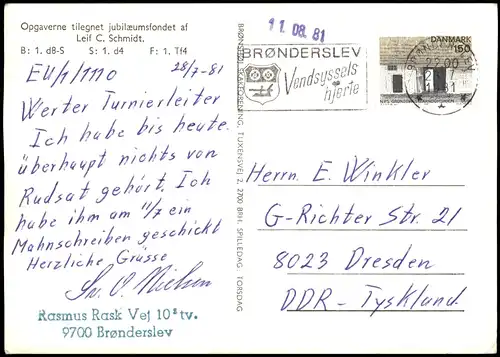 Opgaverne tilegnet jubilæumsfondet af
Leif C. Schmidt.
B: 1. d8-S S: 1. d4 F: 1. Tf4
EU/1/1110 28/7-81
Werter Turnierleiter
Ich habe bis heute
überhaupt nichts von
Rudsat gehört. Ich
habe ihm am 11/7 ein
Mahnschreiben geschickt
Herzliche Grüsse
Sv. O. Nielsen
Rasmus Rask Vej 10² tv.
9700 Brønderslev
BRØNSHØJ SKAKFORENING, TUXENSVEJ 2, 2700 BRH. SPILLEDAG: TORSDAG
11.08.81
BRØNDERSLEV
Vendsyssels
hjerte
DANMARK
150
Herrn E. Winkler
G-Richter Str. 21
8023 Dresden
DDR-Tyskland